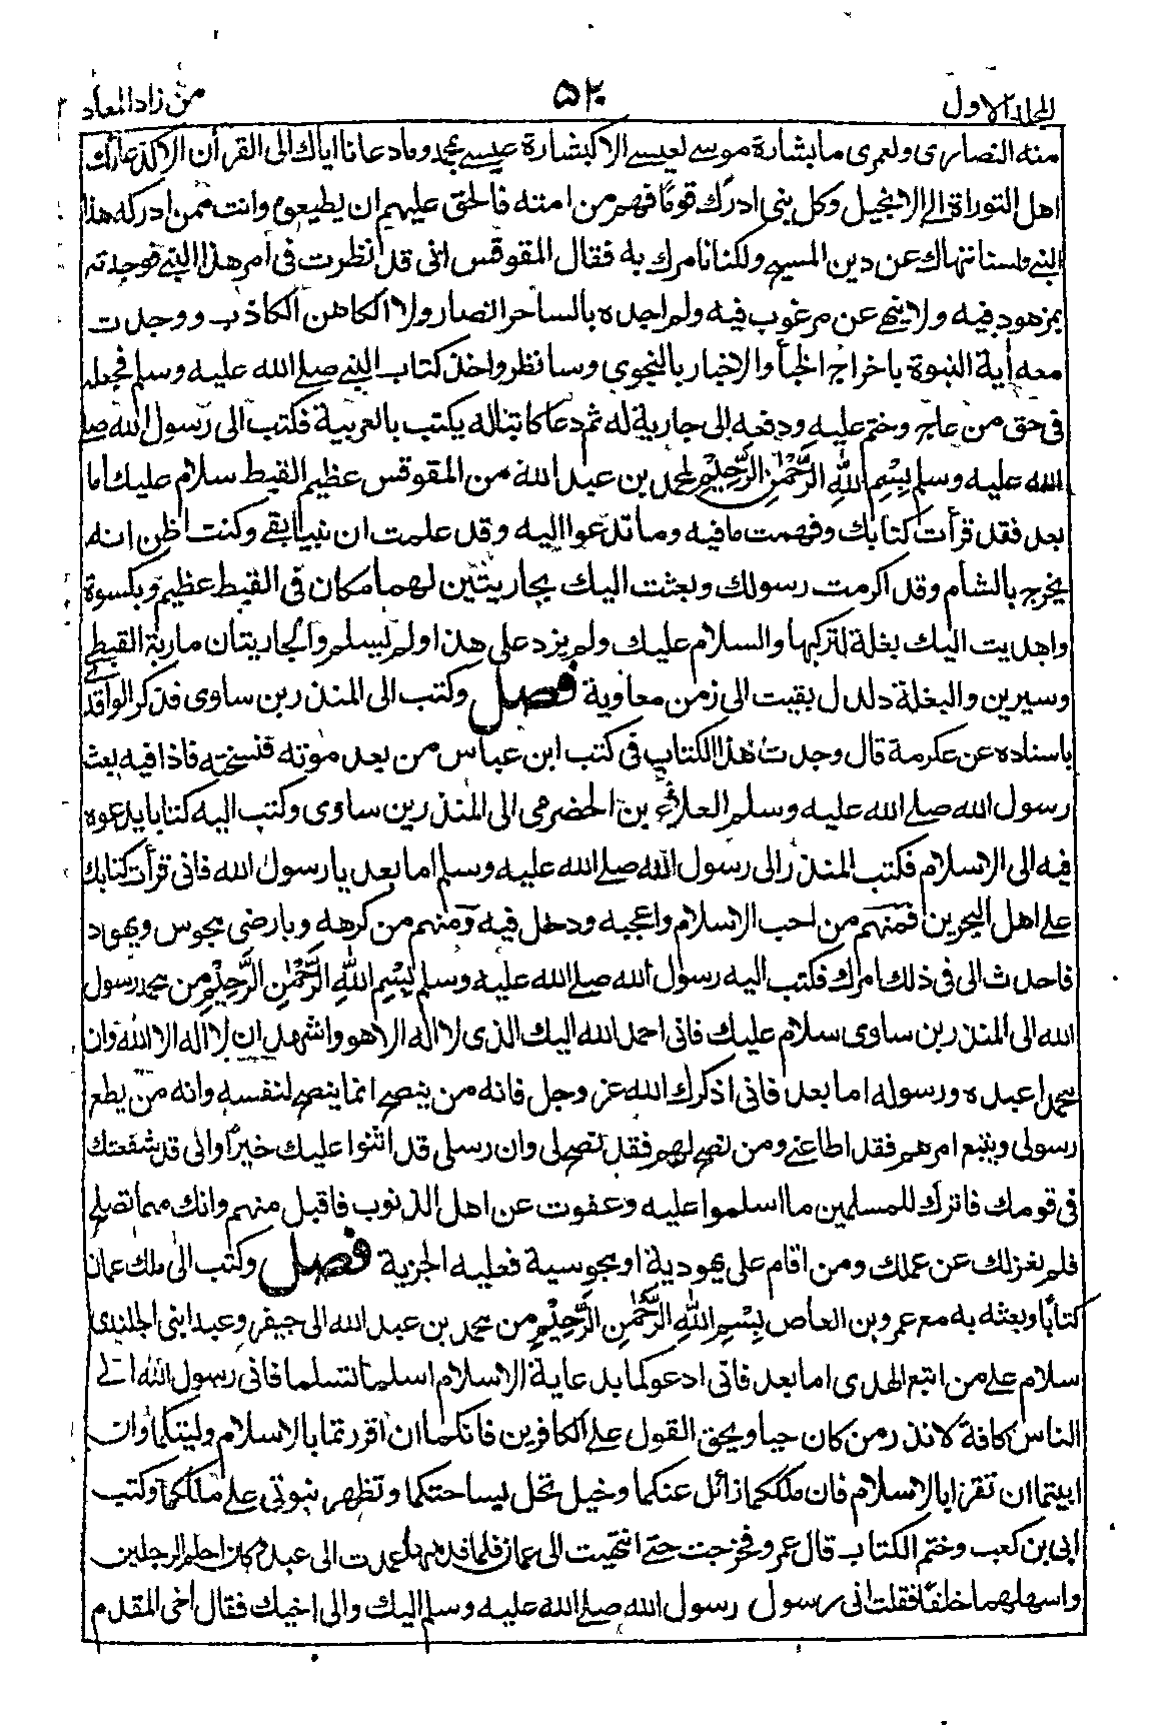 المجلد الاول ۵۲۰ من زاد المعاد
منه النصارى ولعمرى ما بشارة موسى لعيسى الا كبشارة عيسى بمحمد وما دعانا اياك الى القرأن الا كدعائك
اهل التوراة الى الانجيل وكل نبى ادرك قوما فهم من امته فالحق عليهم ان يطيعوه وانت ممن ادركه هذا
النبى ولسنا ننهاك عن دين المسيح ولكنا نامرك به فقال المقوقس انى قد نظرت فى امر هذا النبى فوجدته
بمزهود فيه ولا ينهى عن مرغوب فيه ولم اجده بالساحر الضار ولا الكاهن الكاذب ووجدت
معه أية النبوة باخراج الخبأ والاخبار بالنجوى وسانظر واخذ كتاب النبى صلے الله عليه وسلم فجعله
فى حق من عاج وختم عليه ودفعه الى جارية له ثم دعا كاتبا له يكتب بالعربية فكتب الى رسول الله صلے
الله عليه وسلم بِسْمِ اللهِ الرَّحْمٰنِ الرَّحِيْمِ لمحمد بن عبد الله من المقوقس عظيم القبط سلام عليك اما
بعد فقد قرأت كتابك وفهمت ما فيه وما تدعوا اليه وقد علمت ان نبيا بقى وكنت اظن انه
يخرج بالشام وقد اكرمت رسولك وبعثت اليك بجاريتين لهما مكان فى القبط عظيم وبكسوة
واهديت اليك بغلة لتركبها والسلام عليك ولم يزد على هذا ولم يسلم والجاريتان مارية القبطى
وسيرين والبغلة دلدل بقيت الى زمن معاوية فصل وكتب الى المنذر بن ساوى فذكر الواقدى
باسناده عن عكرمة قال وجدت هذا الكتاب فى كتب ابن عباس من بعد موته فنسخته فاذا فيه بعث
رسول الله صلے الله عليه وسلم العلاء بن الحضرمى الى المنذر بن ساوى وكتب اليه كتابا يدعوه
فيه الى الاسلام فكتب المنذر الى رسول الله صلے الله عليه وسلم اما بعد يا رسول الله فانى قرأت كتابك
على اهل البحرين فمنهم من احب الاسلام واعجبه ودخل فيه ومنهم من كرهه وبارضى مجوس ويهود
فاحدث الى فى ذلك امرك فكتب اليه رسول الله صلے الله عليه وسلم بِسْمِ اللهِ الرَّحْمٰنِ الرَّحِيْمِ من محمد رسول
الله الى المنذر بن ساوى سلام عليك فانى احمد الله اليك الذى لا اله الا هو واشهد ان لا اله الا الله وان
محمدا عبده ورسوله اما بعد فانى اذكرك الله عز وجل فانه من ينصح انما ينصح لنفسه وانه من يطع
رسولى ويتبع امرهم فقد اطاعنى ومن نصح لهم فقد نصح لى وان رسلى قد اثنوا عليك خيرا وانى قد شفعتك
فى قومك فاترك للمسلمين ما اسلموا عليه وعفوت عن اهل الذنوب فاقبل منهم وانك مهما تصلح
فلم نعزلك عن عملك ومن اقام على يهودية او مجوسية فعليه الجزية فصل وكتب الى ملك عمان
كتابا وبعثه به مع عمرو بن العاص بِسْمِ اللهِ الرَّحْمٰنِ الرَّحِيْمِ من محمد بن عبد الله الى جيفر وعبد ابنى الجلندى
سلام على من اتبع الهدى اما بعد فانى ادعوكما بدعاية الاسلام اسلما تسلما فانى رسول الله الى
الناس كافة لانذر من كان حيا ويحق القول على الكافرين فانكما ان اقررتما بالاسلام وليتكما وان
ابيتما ان تقرا بالاسلام فان ملككما زائل عنكما وخيل تحل بساحتكما وتظهر نبوتى على ملككما وكتب
ابى بن كعب وختم الكتاب قال عمرو فخرجت حتى انتهيت الى عمان فلما قدمتها عمدت الى عبد وكان احلم الرجلين
واسهلهما خلقا فقلت انى رسول رسول الله صلے الله عليه وسلم اليك والى اخيك فقال اخى المقدم